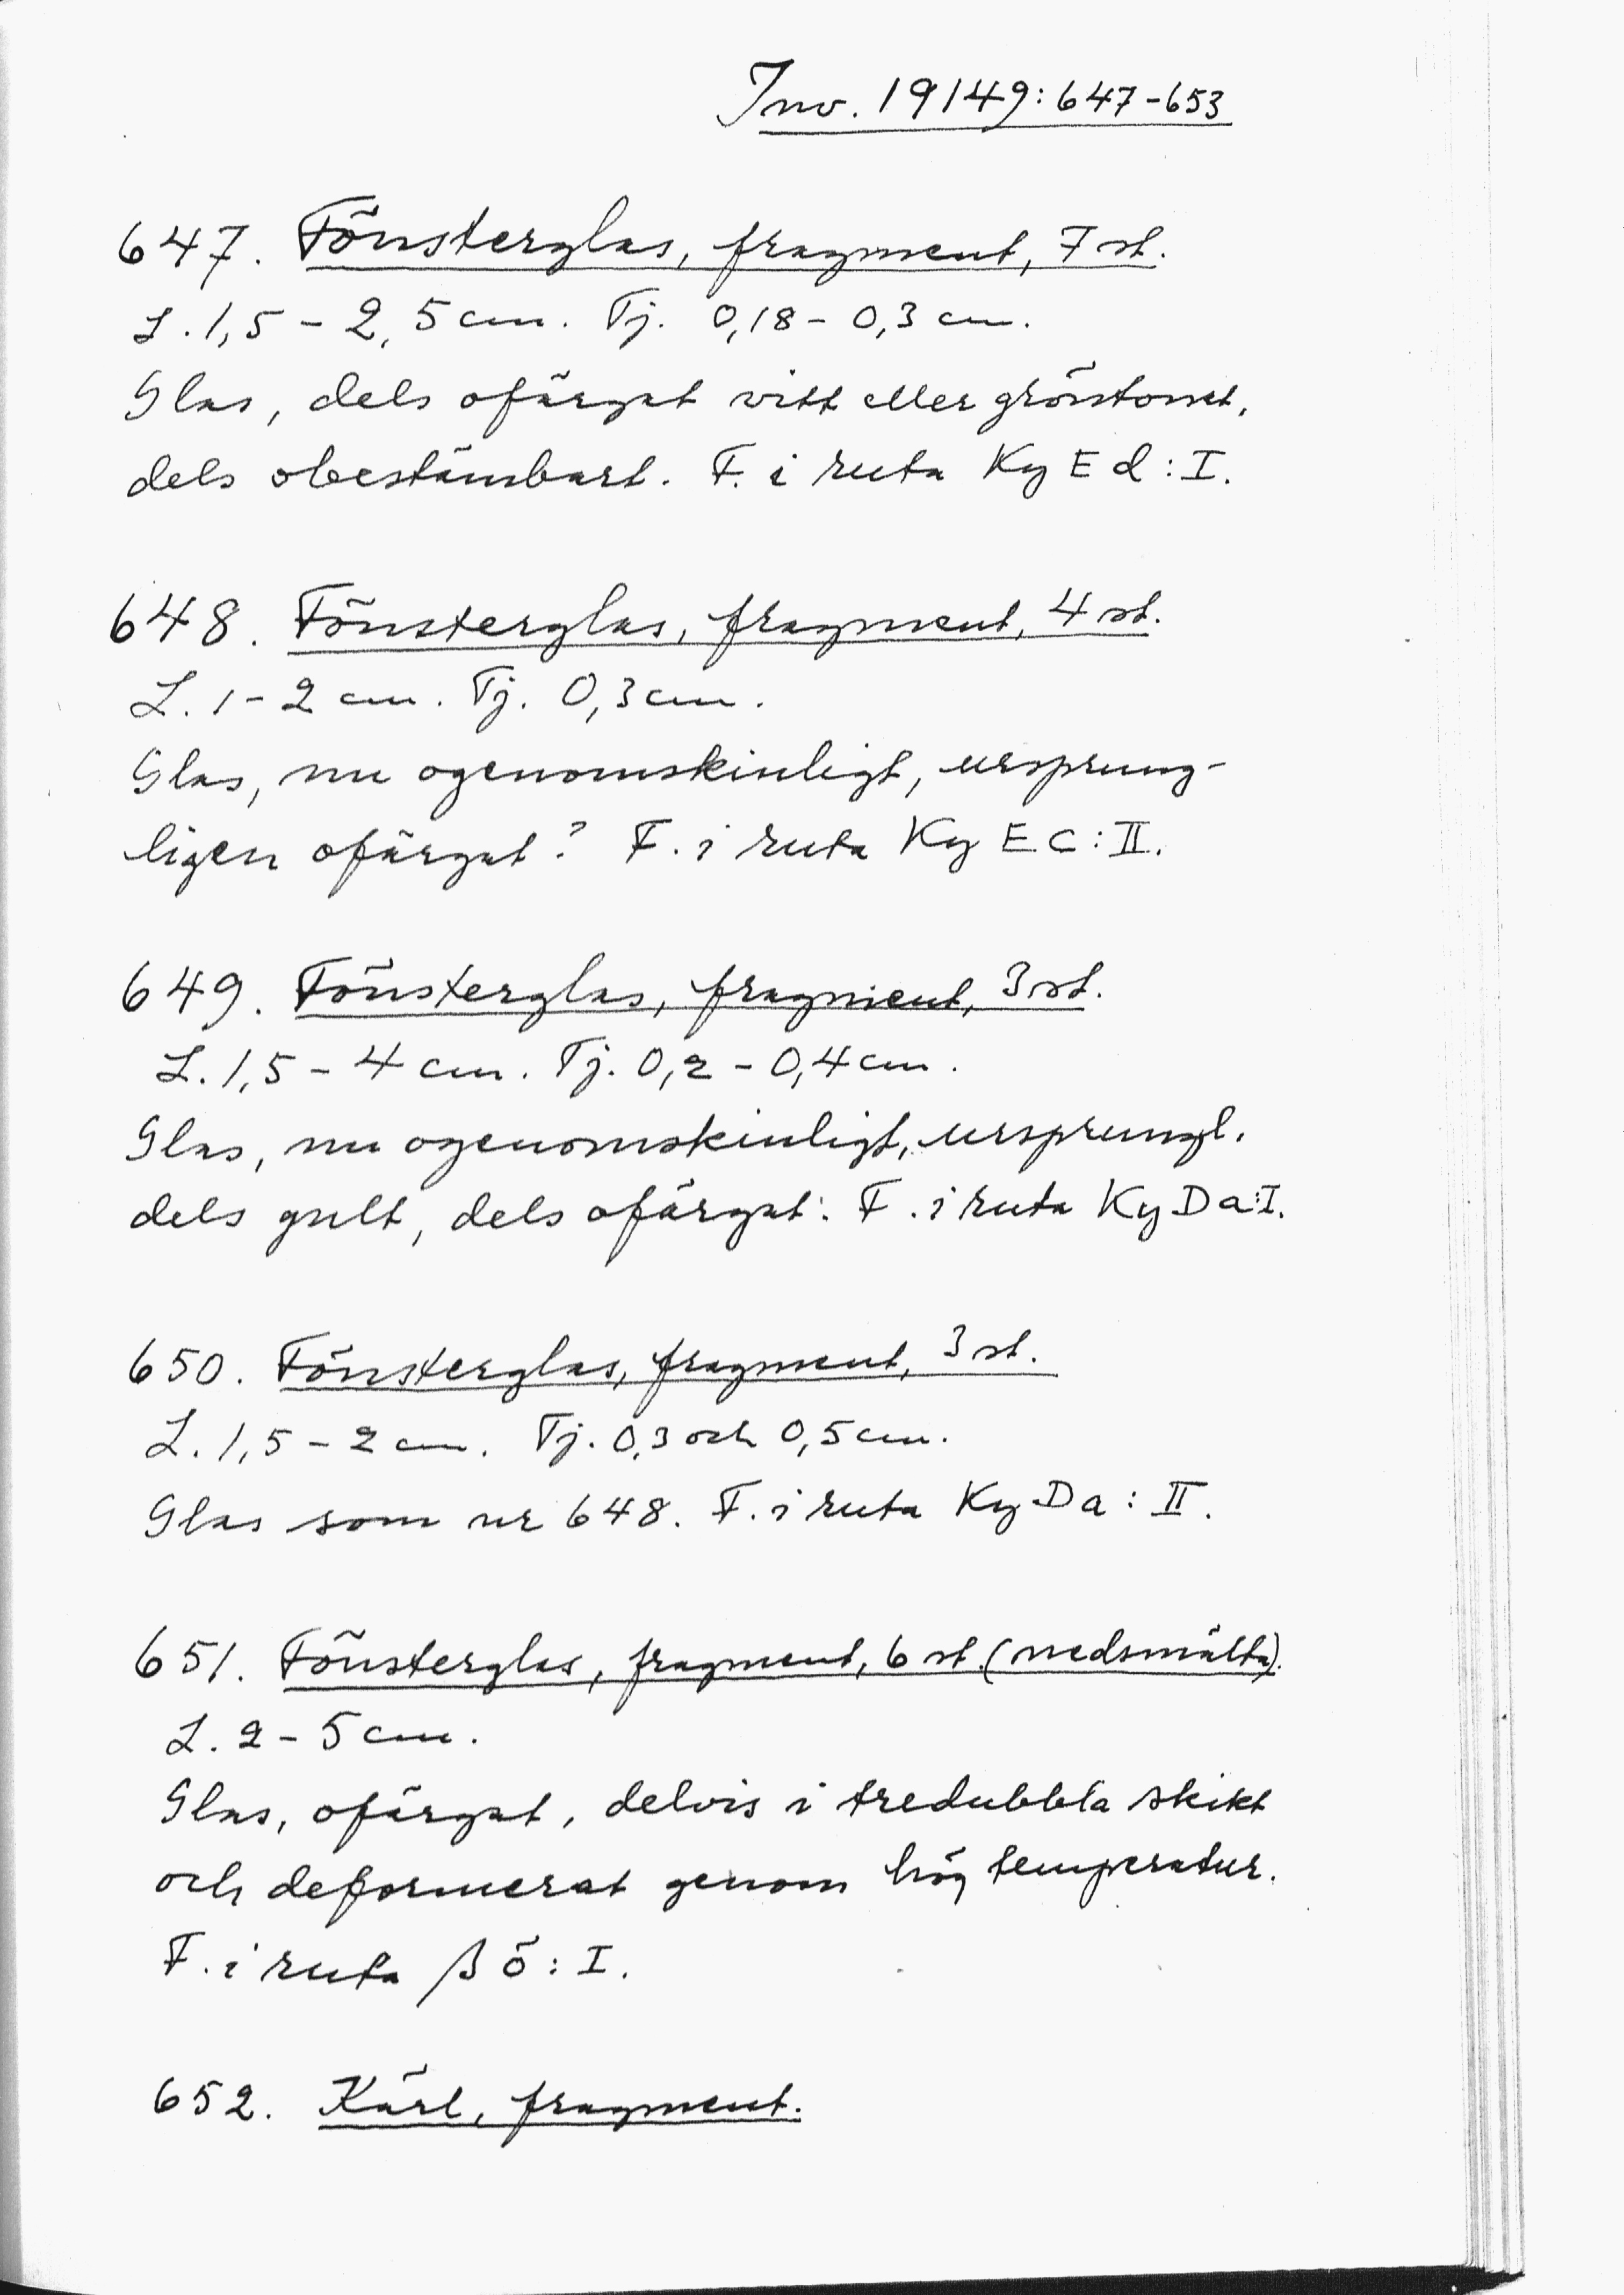 Inv. 19149:647-653
647. Fönsterglas, fragment, 7 st.
L. 1,5 - 2,5 cm. Tj. 0,18 - 0,3 cm.
Glas, dels ofärgat vitt eller gröntonat,
dels obestämbart. F. i ruta Ky E d : I.
648. Fönsterglas, fragment, 4 st.
L. 1 - 2 cm. Tj. 0,3 cm.
Glas, nu ogenomskinligt, ursprung-
ligen ofärgat? F. i ruta Ky E C : II.
649. Fönsterglas, fragment, 3 st.
L. 1,5 - 4 cm. Tj. 0,2 - 0,4 cm.
Glas, nu ogenomskinligt, ursprungl.
dels gult, dels ofärgat. F. i ruta Ky D a : I.
650. Fönsterglas, fragment, 3 st.
L. 1,5 - 2 cm. Tj. 0,3 och 0,5 cm.
Glas som nr 648. F. i ruta Ky D a : II.
651. Fönsterglas, fragment, 6 st. (nedsmälta).
L. 2 - 5 cm.
Glas, ofärgat, delvis i tredubbla skikt
och deformerat genom hög temperatur.
F. i ruta β ö : I.
652. Kärl, fragment.